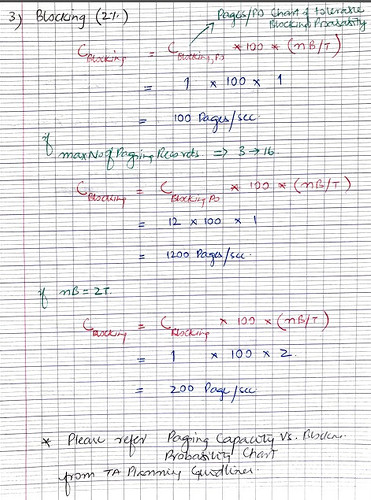 3) Blocking (2%)
Pages/PO Chart & tolerable
Blocking Probability
C Blocking = C Blocking, PO * 100 * (nB/T)
= 1 * 100 * 1
= 100 Pages/sec.
if
maxNoOfPagingRecords => 3 → 16.
C Blocking = C Blocking PO * 100 * (nB/T)
= 12 * 100 * 1
= 1200 Pages/sec.
if nB = 2T.
C Blocking = C Blocking * 100 * (nB/T)
= 1 * 100 * 2.
= 200 Page/sec
* Please refer Paging Capacity Vs.
Probability Chart
from TA Planning Guidlines.